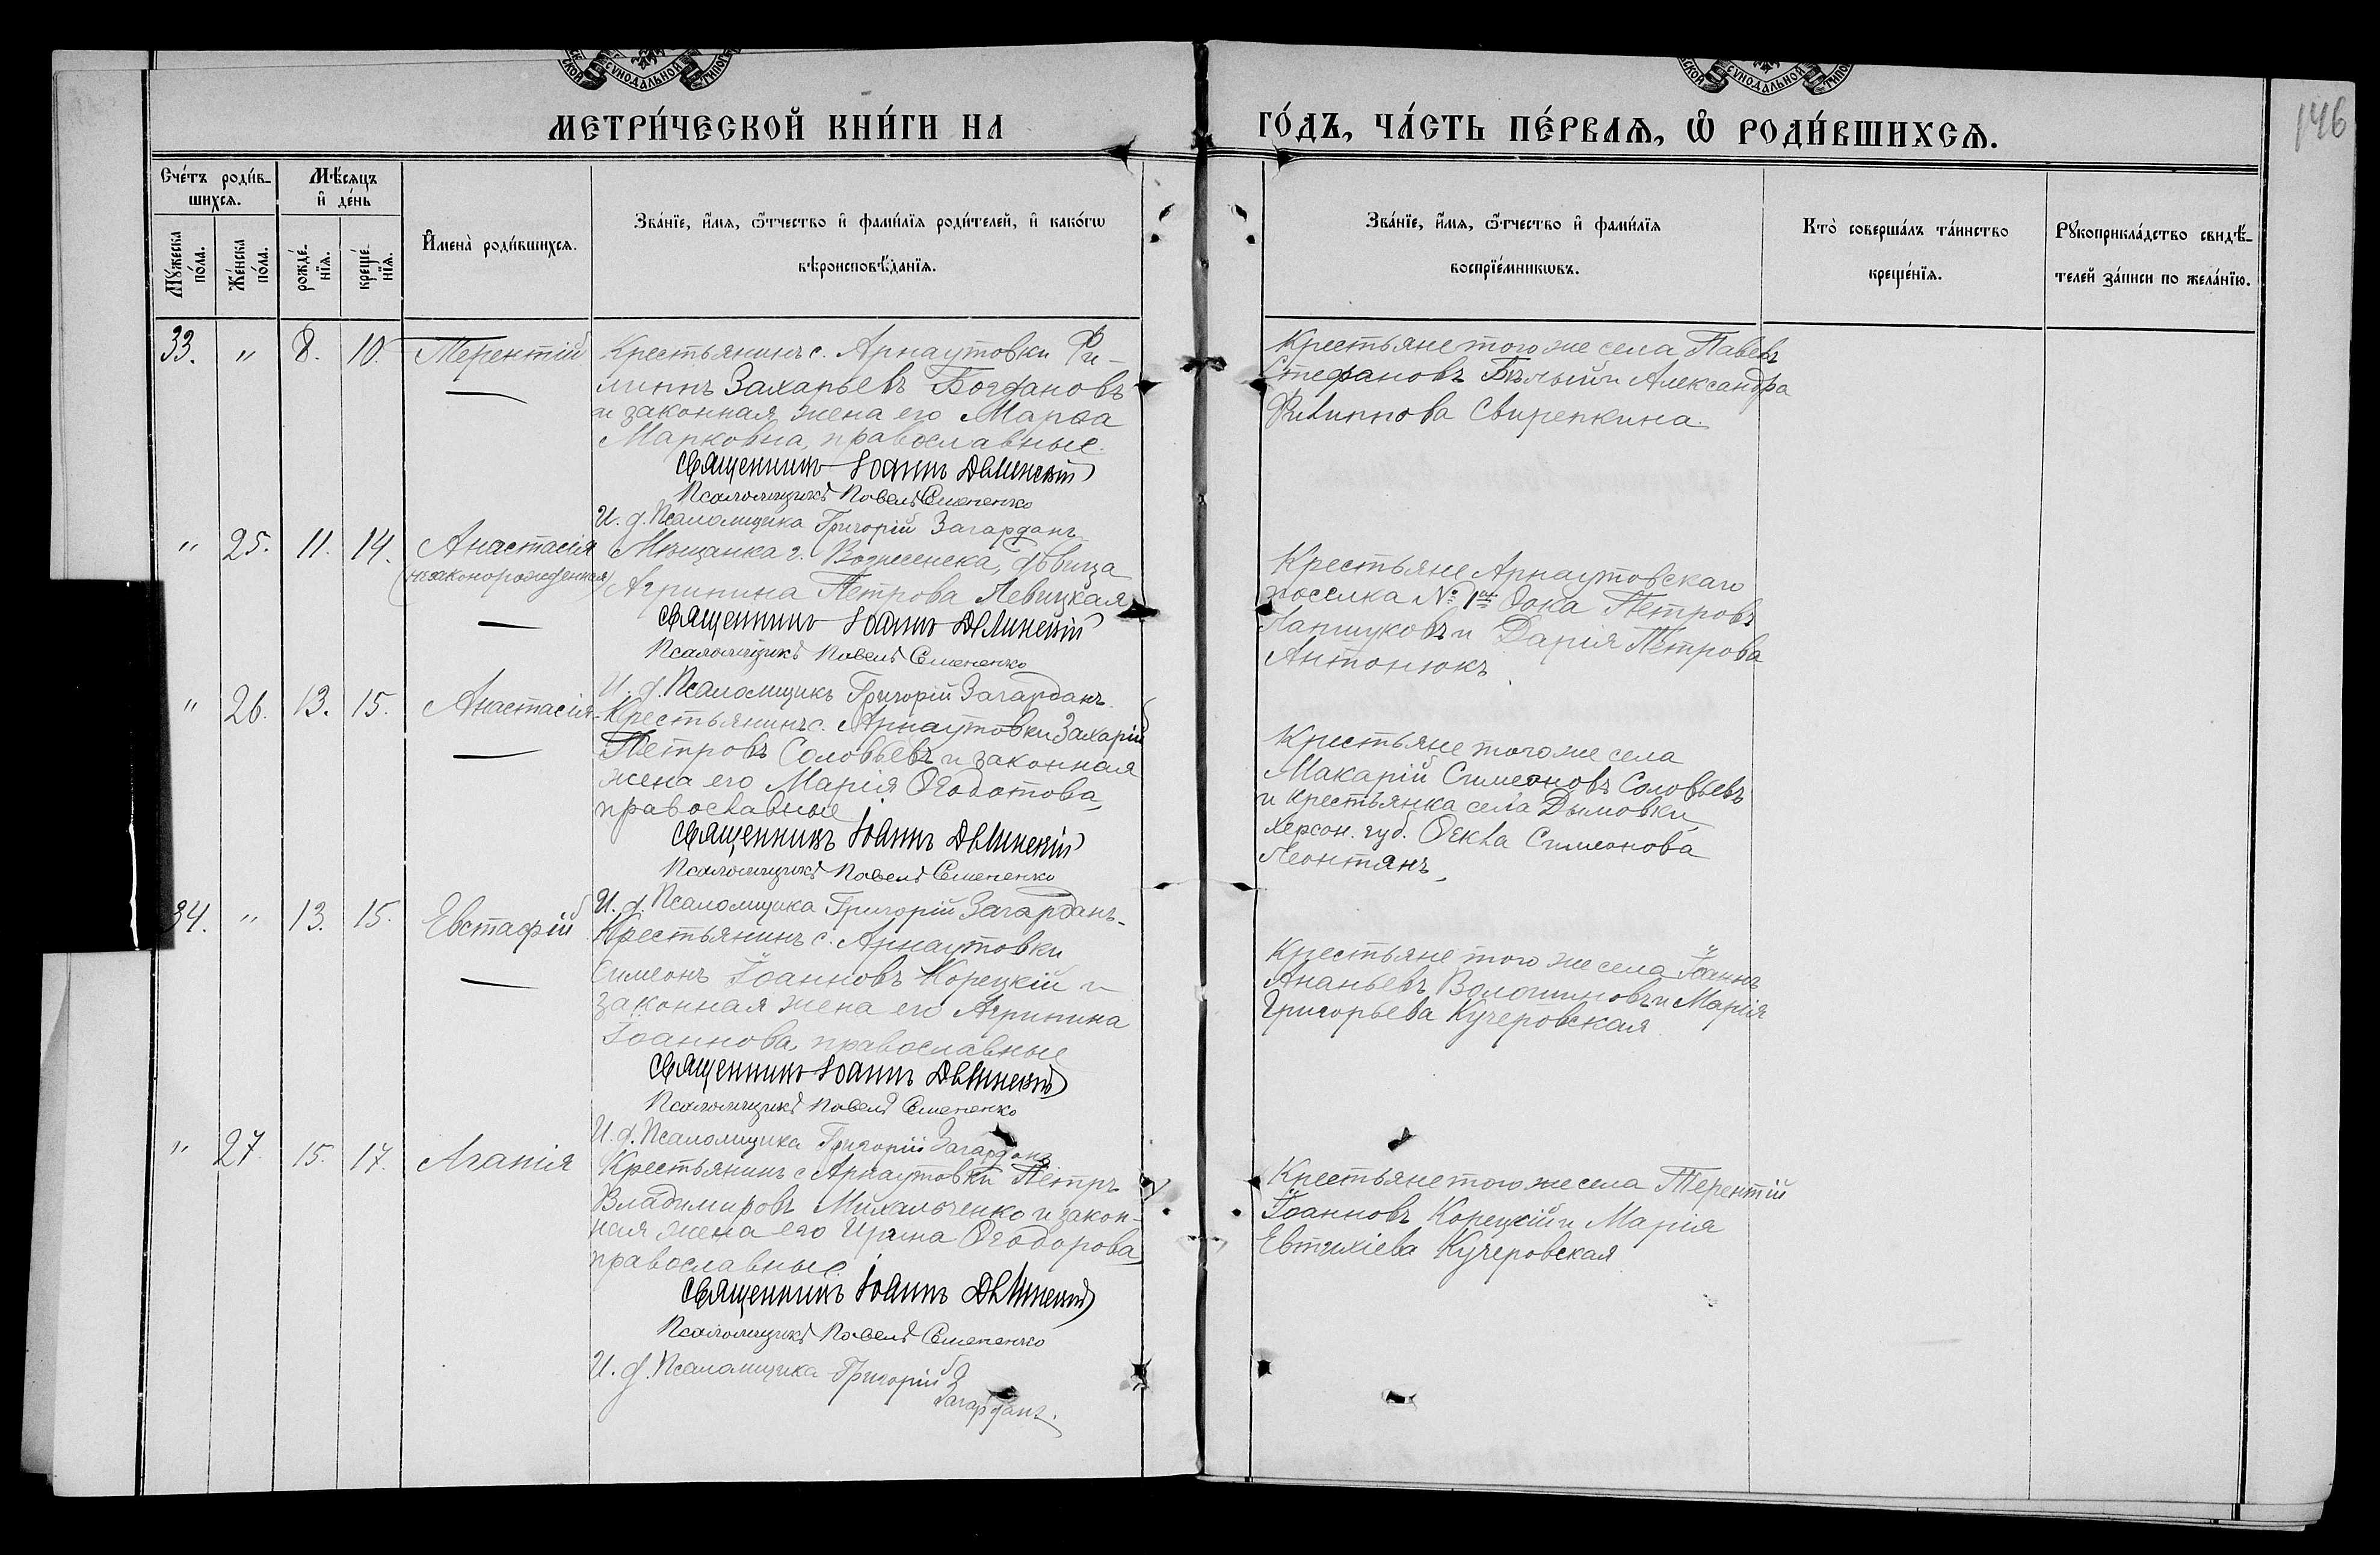 СѴНОДАЛЬНОЙ
СѴНОДАЛЬНОЙ
МЕТРИ́ЧЕСКОЙ КНИ́ГИ НА
ГО́ДЪ, ЧА́СТЬ ПЕ́РВАѦ, Ѡ҆ РОДИ́ВШИХСѦ.
146
Сче́тъ роди́в-
шихсѧ.
Мѣ́сѧцъ
и҆ де́нь
Мꙋ́жеска
по́ла.
Же́нска
по́ла.
рожде́-
нїѧ.
креще́-
нїѧ.
И҆мена̀ роди́вшихсѧ.
Зва́нїе, и҆́мѧ, ѻ҆́тчество и҆ фами́лїѧ роди́телей, и҆ како́гѡ
вѣроисповѣ́данїѧ.
Зва́нїе, и҆́мѧ, ѻ҆́тчество и҆ фами́лїѧ
воспрїе́мникѡвъ.
Кто̀ соверша́лъ та́инство
креще́нїѧ.
Рꙋкоприкла́дство свидѣ́-
телей за́писи по жела́нїю.
33. " 8. 10. Терентій
Крестьянинъ с. Арнаутовки Фи-
липпъ Захарьевъ Богдановъ
и законная жена его Марѳа
Марковна, православные.
Священникъ Іоаннъ Двлинскій
Псаломщикъ Павелъ Семененко
И. д. Псаломщика Григорій Загарданъ
Крестьяне того же села Павелъ
Стефановъ Бѣлый и Александра
Филиппова Свирепкина.
" 25. 11. 14. Анастасія
(незаконорожденная)
Мѣщанка г. Вознесенска, дѣвица
Агрипина Петрова Левицкая
Священникъ Іоаннъ Двлинскій
Псаломщикъ Павелъ Семененко
И. д. Псаломщикъ Григорій Загарданъ.
Крестьяне Арнаутовскаго
поселка № 1й Ѳока Петровъ
Лапшуковъ и Дарія Петрова
Антонюкъ.
" 26. 13. 15. Анастасія
Крестьянинъ с. Арнаутовки Захарій
Петровъ Соловьевъ и законная
жена его Марія Ѳеодотова,
православные
Священникъ Іоаннъ Двлинскій
Псаломщикъ Павелъ Семененко
И. д. Псаломщика Григорій Загарданъ.
Крестьяне того же села
Макарій Симеоновъ Соловьевъ
и крестьянка села Дымовки,
Херсон. губ. Ѳекла Симеонова
Леонтянъ.
34. " 13. 15. Евстафій
Крестьянинъ с. Арнаутовки
Симеонъ Іоанновъ Корецкій и
законная жена его Агрипина
Іоаннова, православные
Священникъ Іоаннъ Двлинскій
Псаломщикъ Павелъ Семененко
И. д. Псаломщика Григорій Загарданъ
Крестьяне того же села Іоаннъ
Ананьевъ Волошиновъ и Марія
Григорьева Кучеровская
" 27. 15. 17. Агапія
Крестьянинъ с Арнаутовки Петръ
Владимировъ Михальченко и закон-
ная жена его Ирина Ѳеодорова,
православные.
Священникъ Іоаннъ Двлинскій
Псаломщикъ Павелъ Семененко
И. д. Псаломщика Григорій
Загарданъ.
Крестьяне того же села Терентій
Іоанновъ Корецкій и Марія
Евтихіева Кучеровская